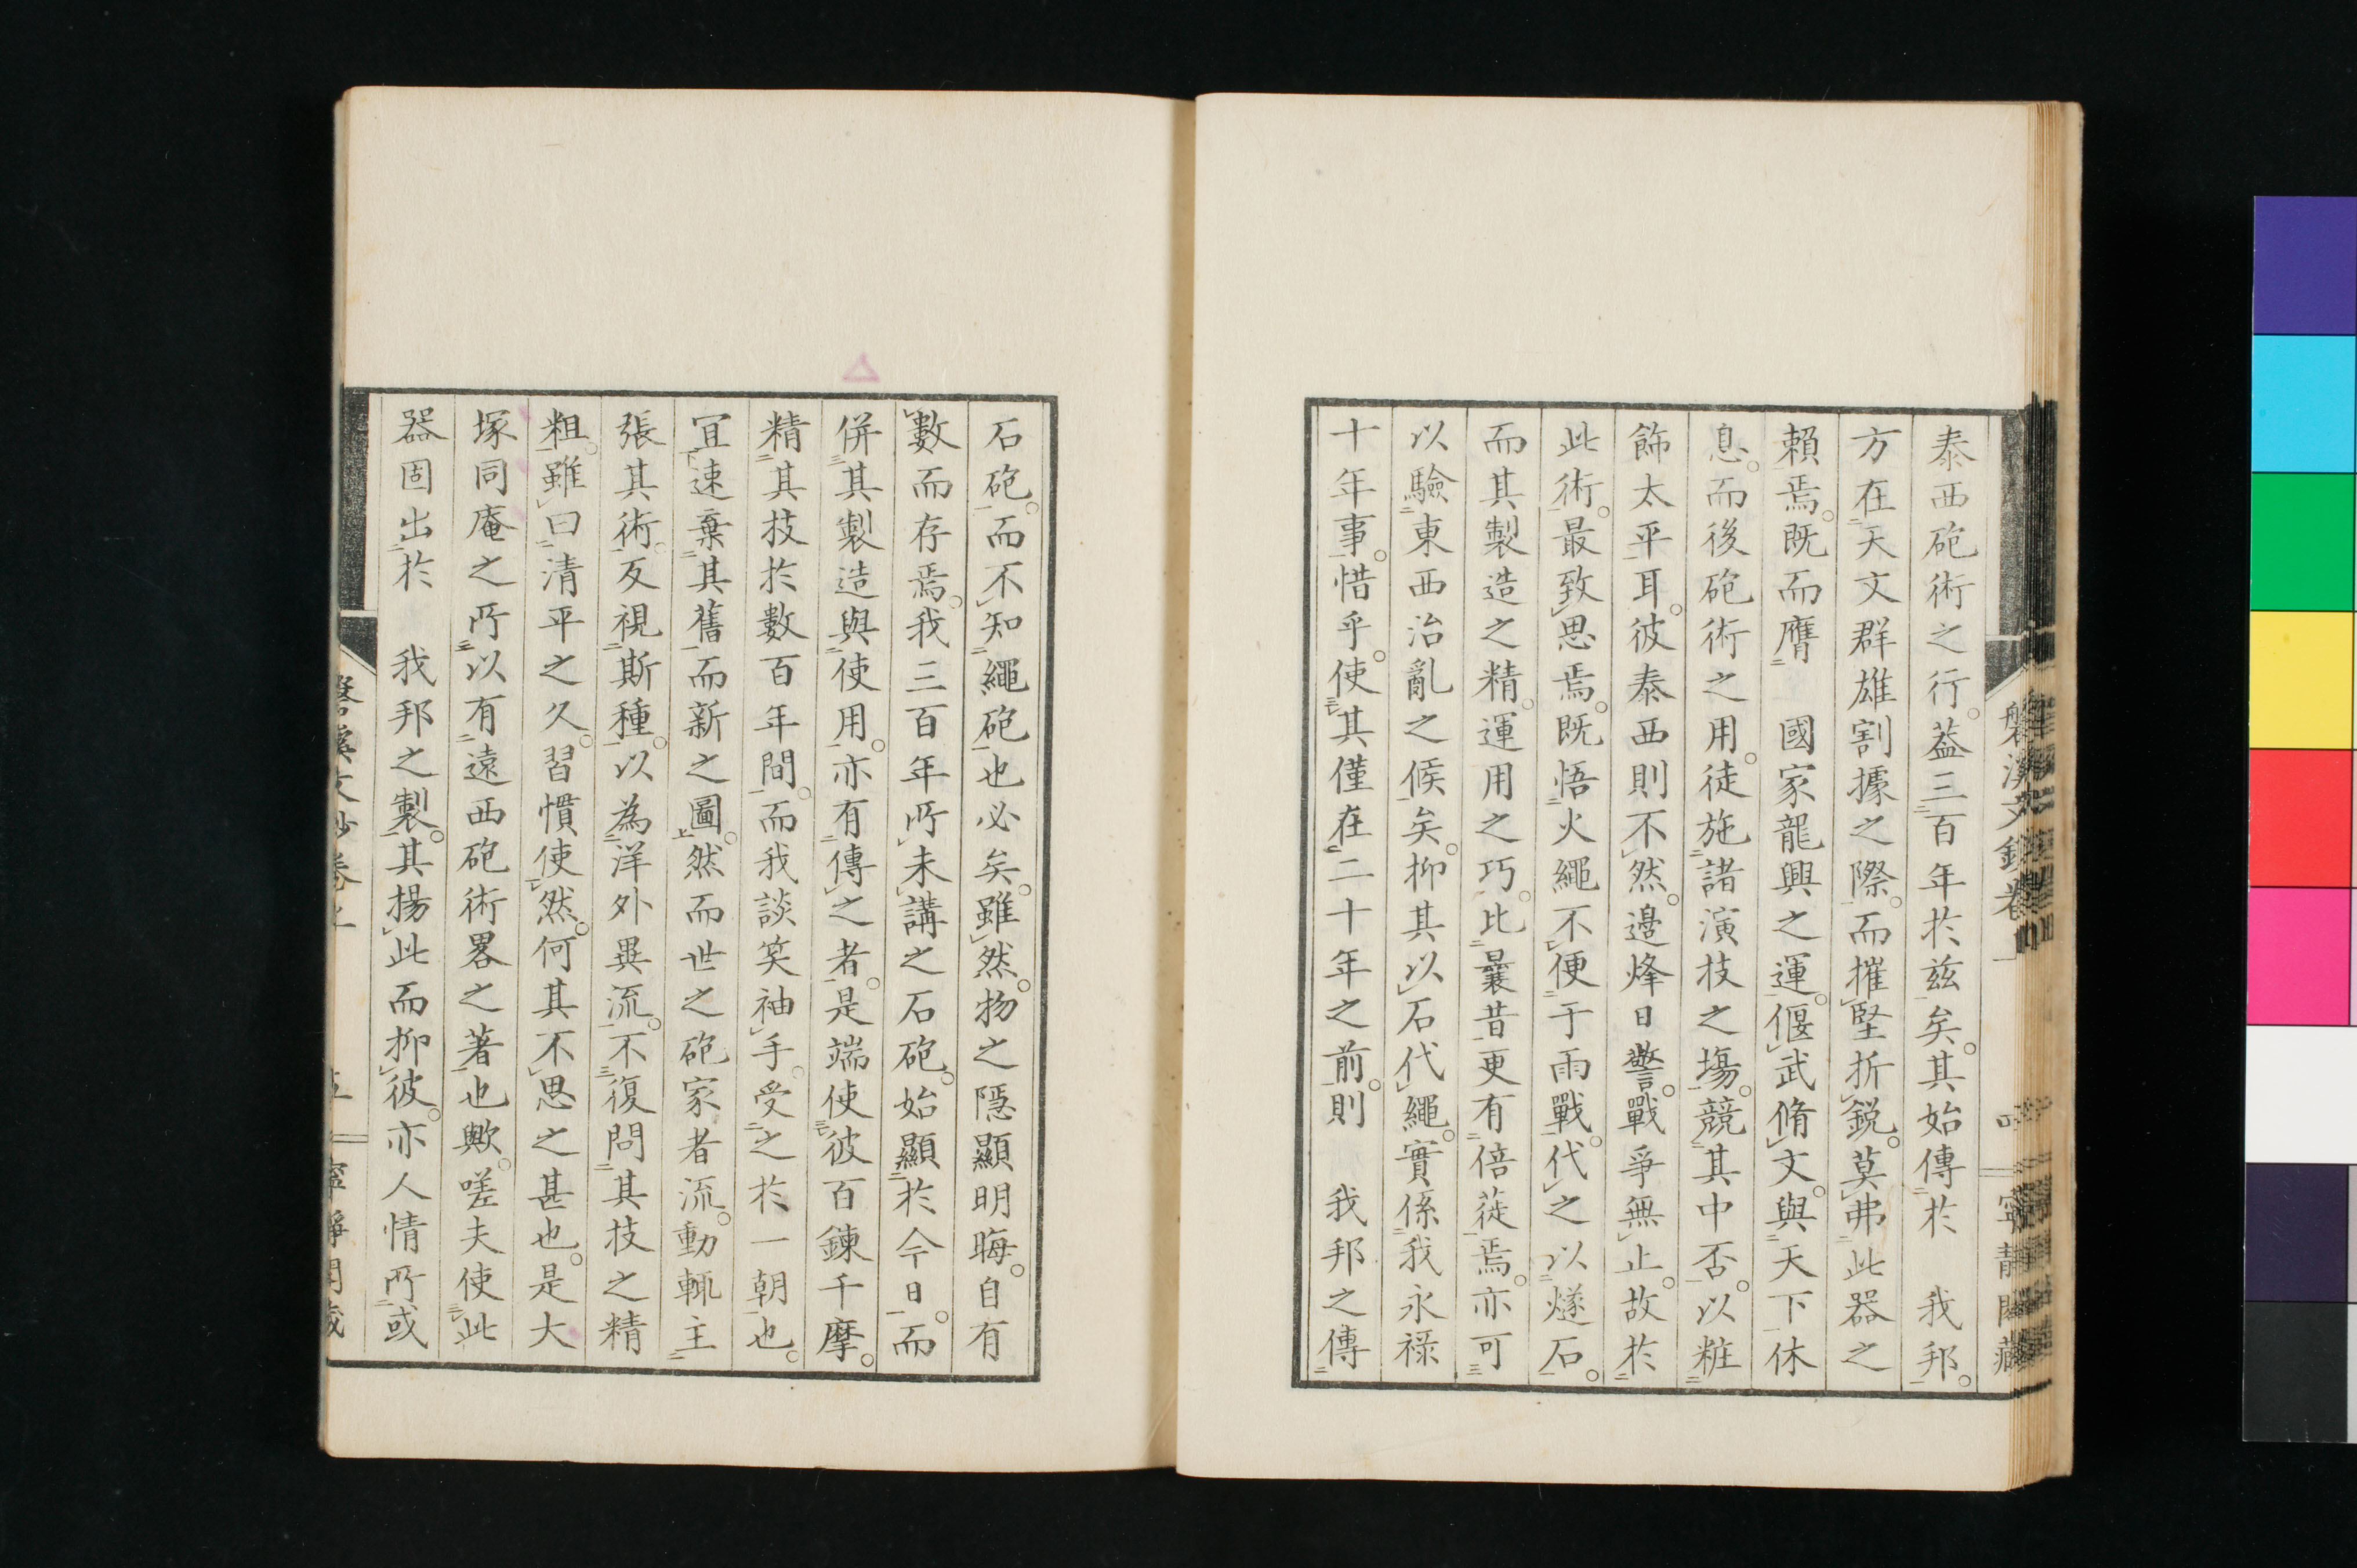 泰西砲術之行。葢三百年於茲矣。其始傳於　我邦。
方在天文群雄割據之際。而摧堅折鋭。莫弗此器之
賴焉。既而膺　國家龍興之運。偃武脩文。與天下休
息。而後砲術之用。徒施諸演技之塲。競其中否。以粧
飾太平耳。彼泰西則不然。邊烽日警。戰爭無止。故於
此術。最致思焉。既悟火繩不便于雨戰。代之以燧石。
而其製造之精。運用之巧。比曩昔更有倍蓰焉。亦可
以驗東西治亂之候矣。抑其以石代繩。實係我永祿
十年事。惜乎。使其僅在二十年之前。則　我邦之傳
石砲。而不知繩砲也必矣。雖然。物之隱顯明晦。自有
數而存焉。我三百年所未講之石砲。始顯於今日。而
併其製造與使用。亦有傳之者。是端使彼百鍊千摩。
精其技於數百年間。而我談笑袖手。受之於一朝也。
宜速棄其舊而新之圖。然而世之砲家者流。動輒主
張其術。反視斯種。以為洋外異流。不復問其技之精
粗。雖曰清平之久。習慣使然。何其不思之甚也。是大
塚同庵之所以有遠西砲術畧之著也歟。嗟夫使此
器固出於　我邦之製。其揚此而抑彼。亦人情所或